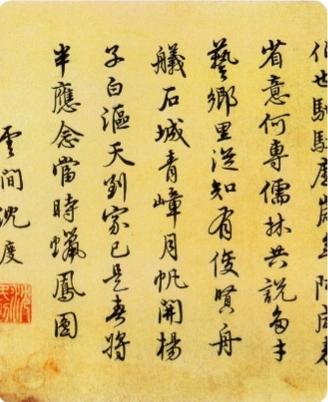 省意何專儒林共說多才
藝鄉里從知有俊賢舟
艤石城青嶂月帆開楊
子白漚天到家已是春將
半應念當時蠟鳳圓
雲間沈度